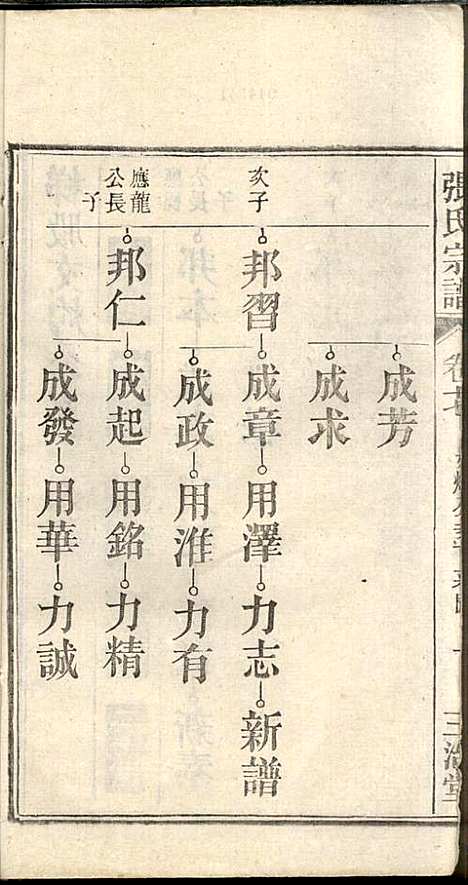 張氏宗譜
成芳
成求
次子
邦習 成章 用澤 力志 新譜
成政 用淮 力有
應龍公長子
邦仁 成起 用銘 力精
成發 用華 力誠